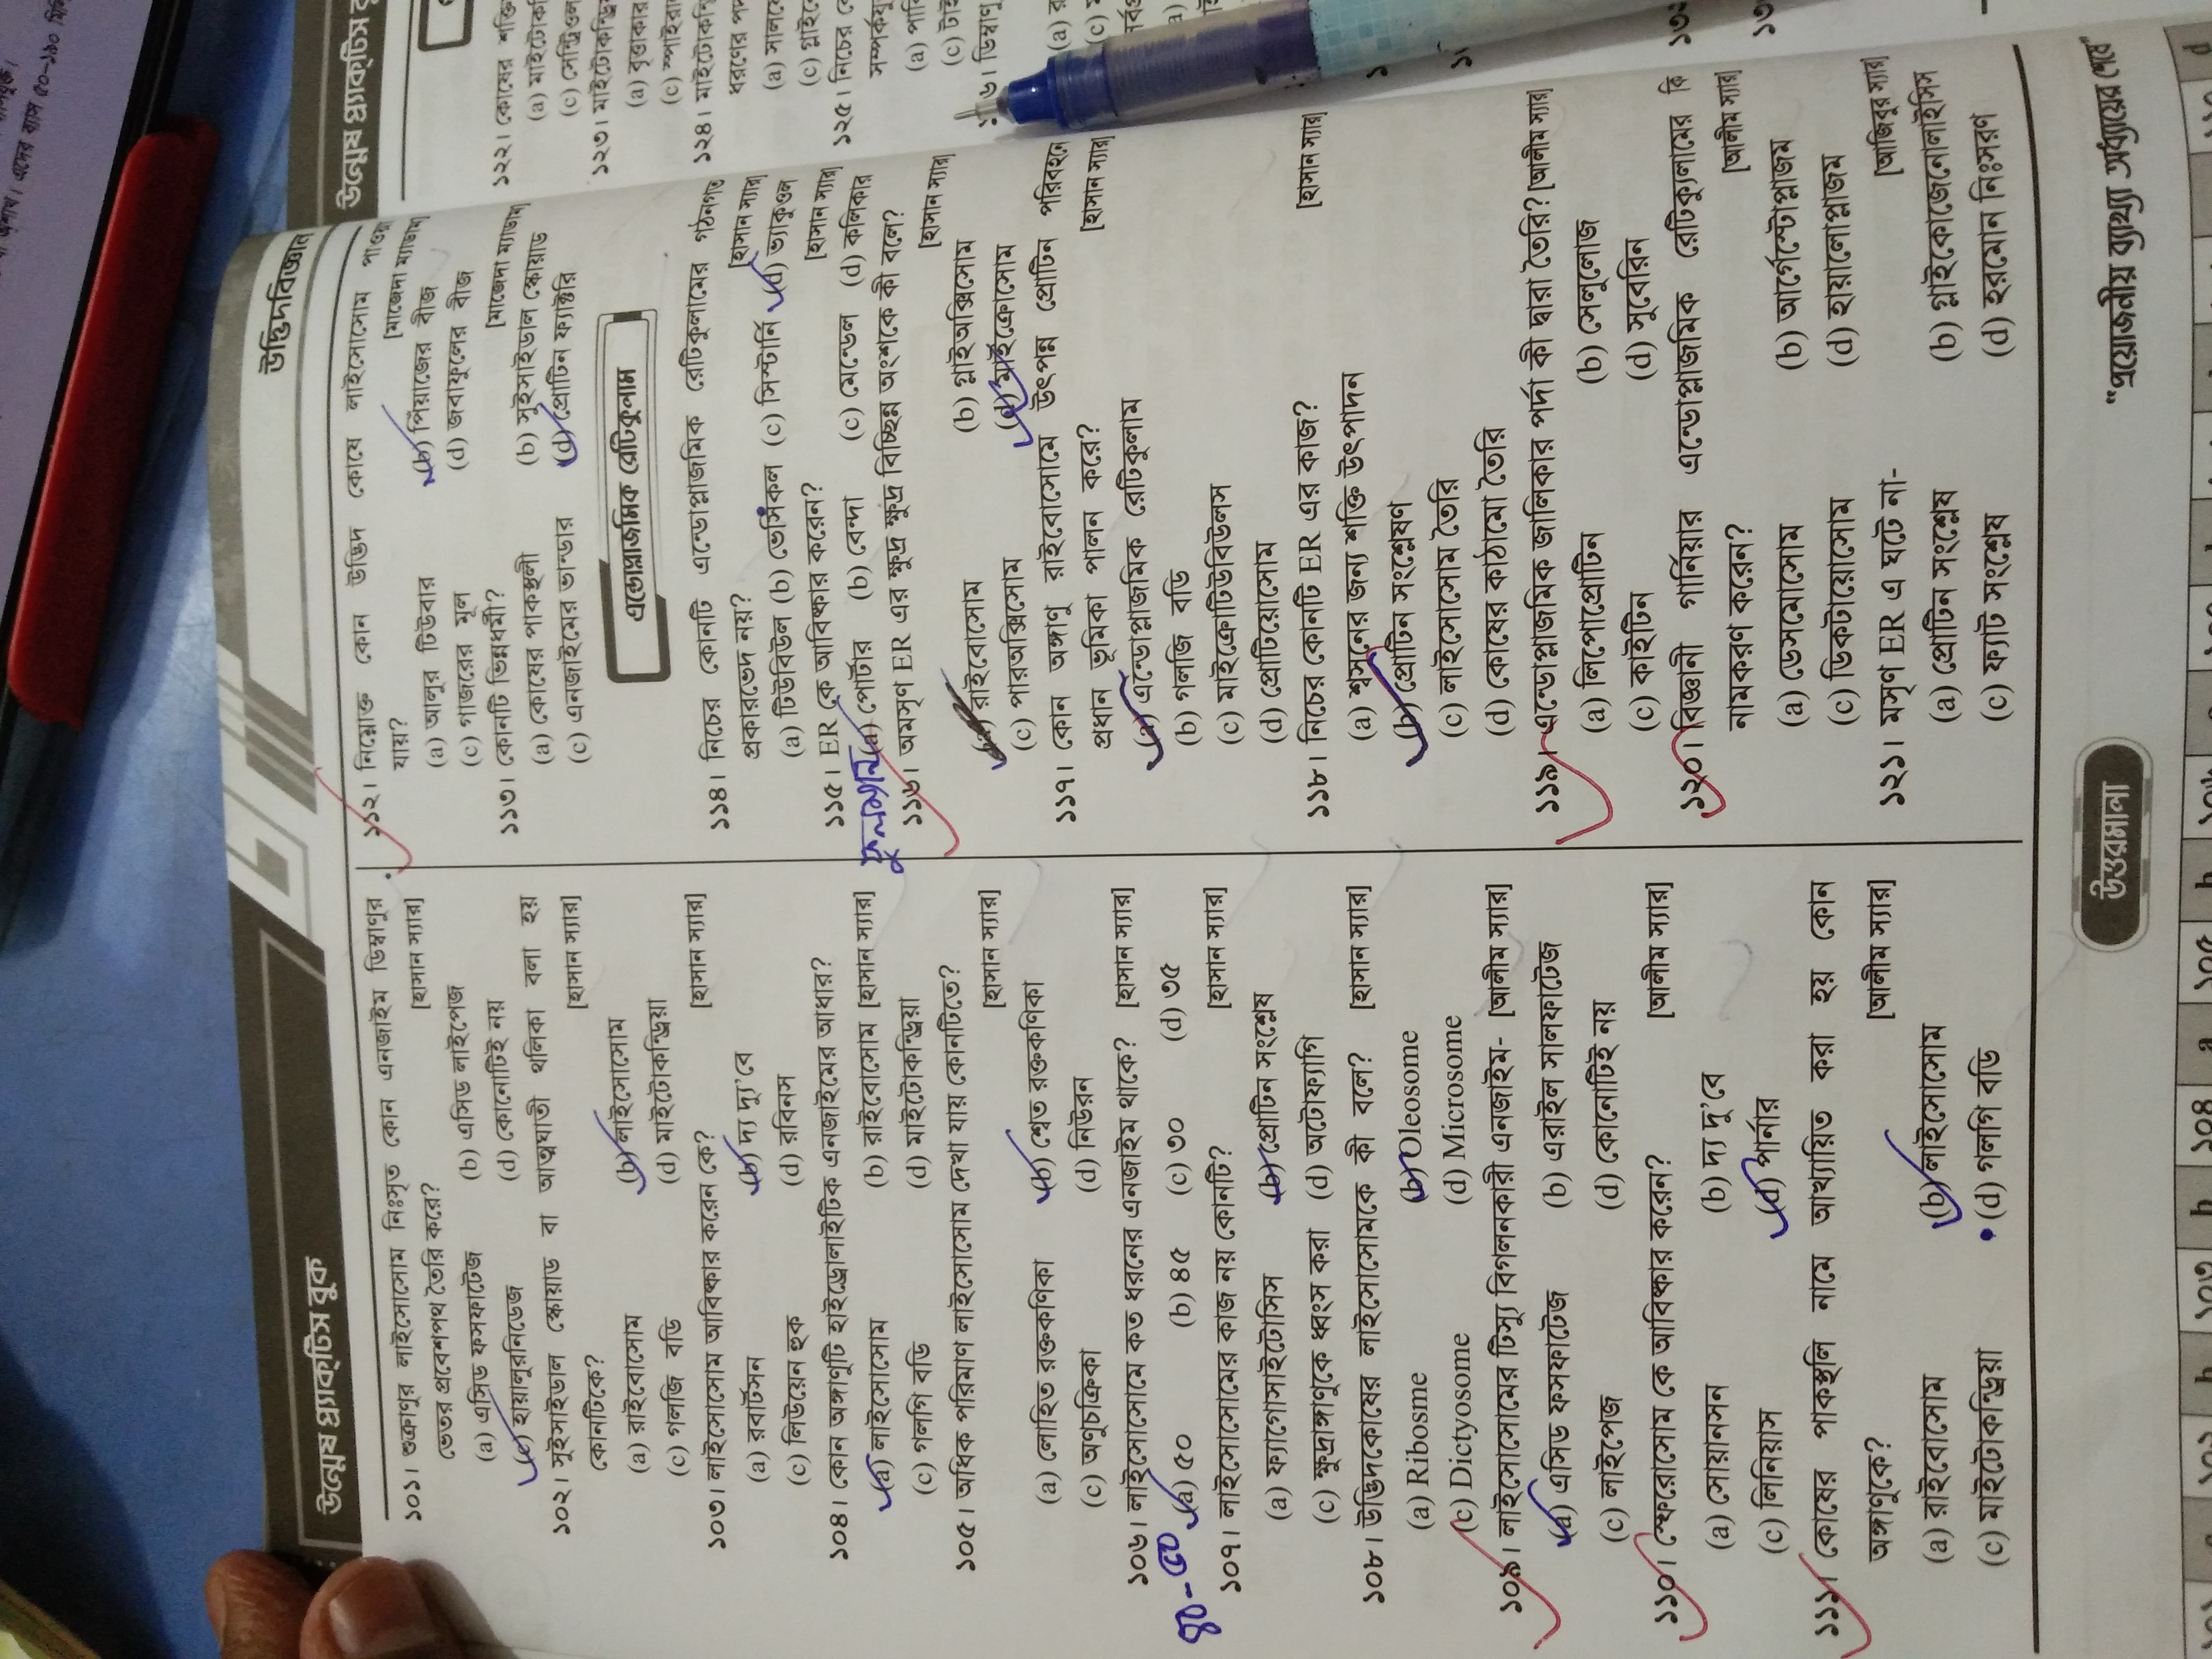 উন্মেষ প্র্যাক্‌টিস বুক
১০১। শুক্রাণুর লাইসোসোম নিঃসৃত কোন এনজাইম ডিম্বাণুর
ভেতর প্রবেশপথ তৈরি করে? [হাসান স্যার]
(a) এসিড ফসফাটেজ (b) এসিড লাইপেজ
(c) হায়ালুরনিডেজ (d) কোনোটিই নয়
১০২। সুইসাইডাল স্কোয়াড বা আত্মঘাতী থলিকা বলা হয়
কোনটিকে? [হাসান স্যার]
(a) রাইবোসোম (b) লাইসোসোম
(c) গলজি বডি (d) মাইটোকন্ড্রিয়া
১০৩। লাইসোসোম আবিষ্কার করেন কে? [হাসান স্যার]
(a) রবার্টসন (b) দ্য দ্যু'বে
(c) লিউয়েন হুক (d) রবিনস
১০৪। কোন অঙ্গাণুটি হাইড্রোলাইটিক এনজাইমের আধার?
(a) লাইসোসোম (b) রাইবোসোম [হাসান স্যার]
(c) গলগি বডি (d) মাইটোকন্ড্রিয়া
১০৫। অধিক পরিমাণ লাইসোসোম দেখা যায় কোনটিতে?
[হাসান স্যার]
(a) লোহিত রক্তকণিকা (b) শ্বেত রক্তকণিকা
(c) অণুচক্রিকা (d) নিউরন
১০৬। লাইসোসোমে কত ধরনের এনজাইম থাকে? [হাসান স্যার]
৪০-৫০ (a) ৫০ (b) ৪৫ (c) ৩০ (d) ৩৫
১০৭। লাইসোসোমের কাজ নয় কোনটি? [হাসান স্যার]
(a) ফ্যাগোসাইটোসিস (b) প্রোটিন সংশ্লেষ
(c) ক্ষুদ্রাঙ্গাণুকে ধ্বংস করা (d) অটোফ্যাগি
১০৮। উদ্ভিদকোষের লাইসোসোমকে কী বলে? [হাসান স্যার]
(a) Ribosme (b) Oleosome
(c) Dictyosome (d) Microsome
১০৯। লাইসোসোমের টিস্যু বিগলনকারী এনজাইম- [আলীম স্যার]
(a) এসিড ফসফাটেজ (b) এরাইল সালফাটেজ
(c) লাইপেজ (d) কোনোটিই নয়
১১০। স্ফেরোসোম কে আবিষ্কার করেন? [আলীম স্যার]
(a) সোয়ানসন (b) দ্য দু'বে
(c) লিনিয়াস (d) পার্নার
১১১। কোষের পাকস্থলি নামে আখ্যায়িত করা হয় কোন
অঙ্গাণুকে? [আলীম স্যার]
(a) রাইবোসোম (b) লাইসোসোম
(c) মাইটোকন্ড্রিয়া (d) গলগি বডি
উদ্ভিদবিজ্ঞান
১১২। নিম্নোক্ত কোন উদ্ভিদ কোষে লাইসোসোম পাওয়া
যায়? [মাজেদা ম্যাডাম]
(a) আলুর টিউবার (b) পিঁয়াজের বীজ
(c) গাজরের মূল (d) জবাফুলের বীজ
১১৩। কোনটি ভিন্নধর্মী? [মাজেদা ম্যাডাম]
(a) কোষের পাকস্থলী (b) সুইসাইডাল স্কোয়াড
(c) এনজাইমের ভান্ডার (d) প্রোটিন ফ্যাক্টরি
এন্ডোপ্লাজমিক রেটিকুলাম
১১৪। নিচের কোনটি এন্ডোপ্লাজমিক রেটিকুলামের গঠনগত
প্রকারভেদ নয়? [হাসান স্যার]
(a) টিউবিউল (b) ভেসিকল (c) সিস্টার্নি (d) ভ্যাকুওল
১১৫। ER কে আবিষ্কার করেন? [হাসান স্যার]
(a) পোর্টার (b) বেন্দা (c) মেন্ডেল (d) কলিকার
১১৬। অমসৃণ ER এর ক্ষুদ্র ক্ষুদ্র বিচ্ছিন্ন অংশকে কী বলে?
[হাসান স্যার]
(a) রাইবোসোম (b) গ্লাইঅক্সিসোম
(c) পারঅক্সিসোম (d) মাইক্রোসোম
১১৭। কোন অঙ্গাণু রাইবোসোমে উৎপন্ন প্রোটিন পরিবহনে
প্রধান ভূমিকা পালন করে? [হাসান স্যার]
(a) এন্ডোপ্লাজমিক রেটিকুলাম
(b) গলজি বডি
(c) মাইক্রোটিউবিউলস
(d) প্রোটিয়োসোম
১১৮। নিচের কোনটি ER এর কাজ? [হাসান স্যার]
(a) শ্বসনের জন্য শক্তি উৎপাদন
(b) প্রোটিন সংশ্লেষণ
(c) লাইসোসোম তৈরি
(d) কোষের কাঠামো তৈরি
১১৯। এন্ডোপ্লাজমিক জালিকার পর্দা কী দ্বারা তৈরি? [আলীম স্যার]
(a) লিপোপ্রোটিন (b) সেলুলোজ
(c) কাইটিন (d) সুবেরিন
১২০। বিজ্ঞানী গার্নিয়ার এন্ডোপ্লাজমিক রেটিক্যুলামের কি
নামকরণ করেন? [আলীম স্যার]
(a) ডেসমোসোম (b) আর্গেস্টোপ্লাজম
(c) ডিকটায়োসোম (d) হায়ালোপ্লাজম
১২১। মসৃণ ER এ ঘটে না- [আজিবুর স্যার]
(a) প্রোটিন সংশ্লেষ (b) গ্লাইকোজেনোলাইসিস
(c) ফ্যাট সংশ্লেষ (d) হরমোন নিঃসরণ
উত্তরমালা
"প্রয়োজনীয় ব্যাখ্যা অধ্যায়ের শেষে"
উন্মেষ প্র্যাক্‌টিস
১২২। কোষের শক্তি
(c)
১২৩।
১২৪।
ধরণের
১২৫। নিচের